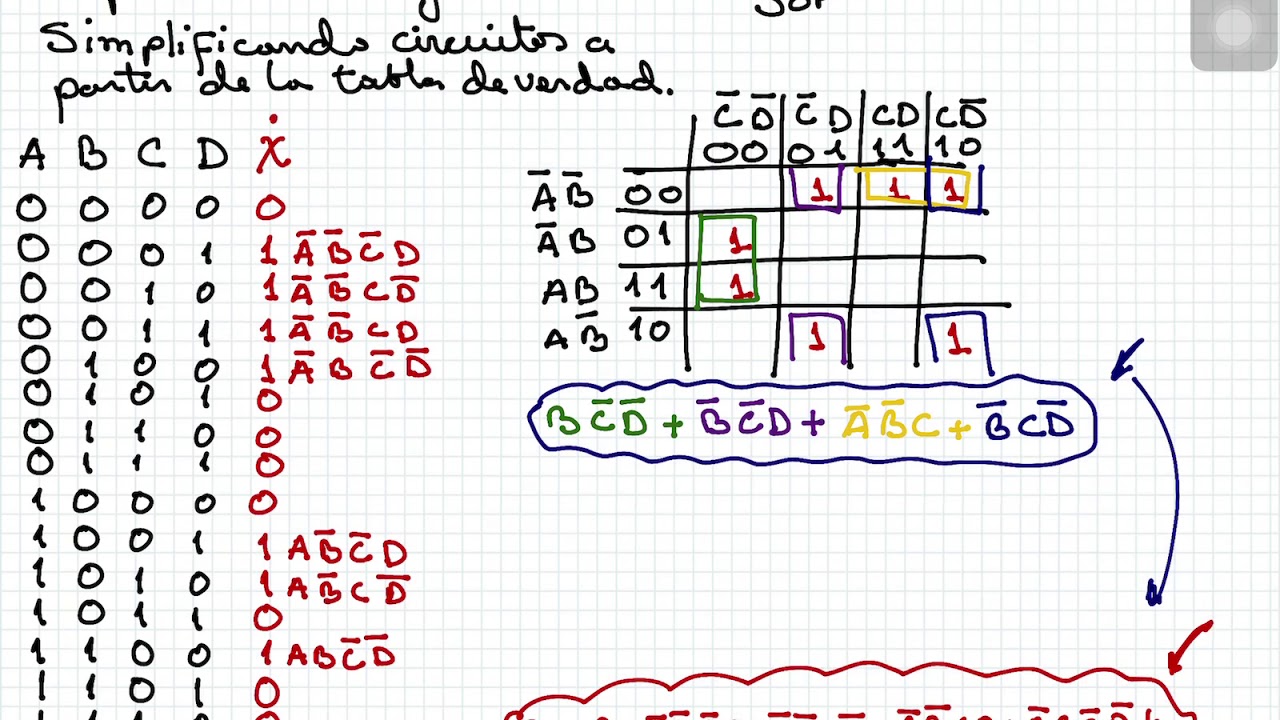 SOP
Simplificando circuitos a
partir de la tabla de verdad.
A B C D X
0 0 0 0 0
0 0 0 1 1 A̅ B̅ C̅ D
0 0 1 0 1 A̅ B̅ C D̅
0 0 1 1 1 A̅ B̅ C D
0 1 0 0 1 A̅ B C̅ D̅
0 1 0 1 0
0 1 1 0 0
0 1 1 1 0
1 0 0 0 0
1 0 0 1 1 A B̅ C̅ D
1 0 1 0 1 A B̅ C D̅
1 0 1 1 0
1 1 0 0 1 A B C̅ D̅
1 1 0 1 0
C̅ D̅ C̅ D CD CD̅
00 01 11 10
A̅ B̅ 00 1 1 1
A̅ B 01 1
AB 11 1
AB̅ 10 1 1
B C̅ D̅ + B̅ C̅ D + A̅ B̅ C + B̅ C D̅